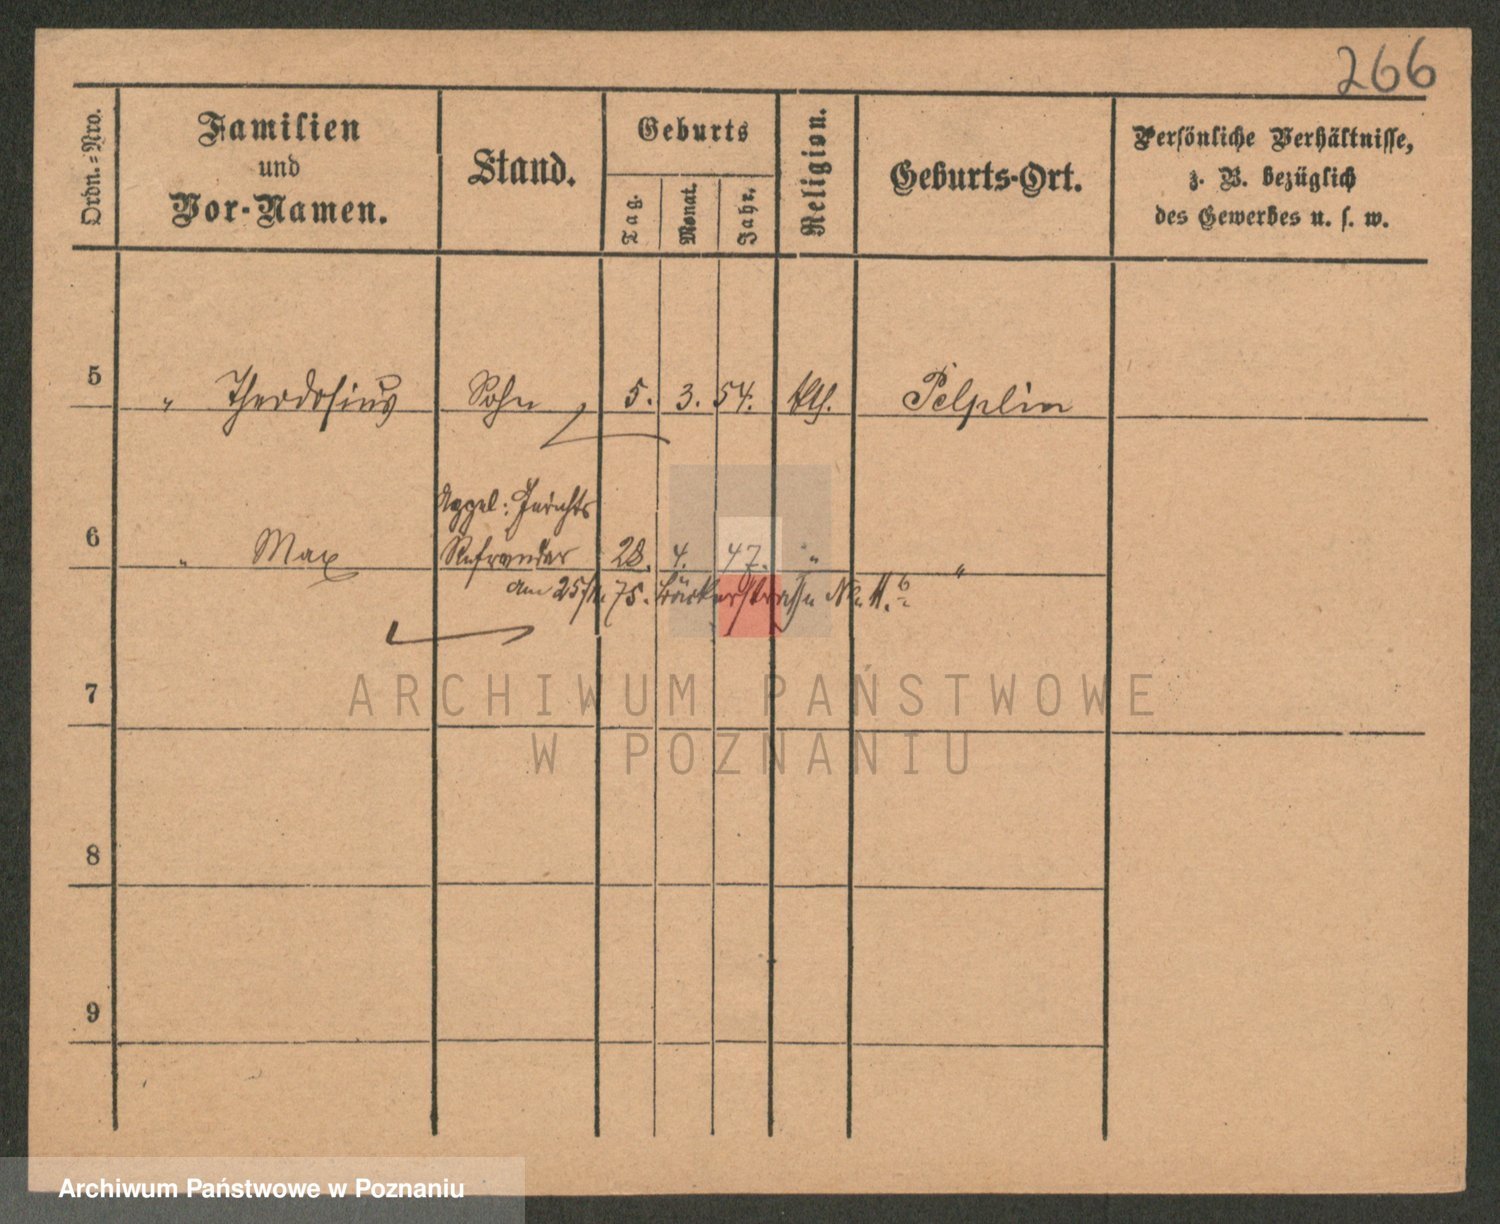 266
Ordn.-Nro.
Familien
und
Vor-Namen.
Stand.
Geburts
Tag.
Monat.
Jahr.
Religion.
Geburts-Ort.
Persönliche Verhältnisse,
z. B. bezüglich
des Gewerbes u. s. w.
5 " Theodosius Sohn 5. 3. 54. kth. Pelplin
Appel: Gerichts
6 " Max Refrendar 28. 4. 47. " "
am 25/ 75. Bäckerstraße No. 11.
7
ARCHIWUM PAŃSTWOWE
W POZNANIU
8
9
Archiwum Państwowe w Poznaniu